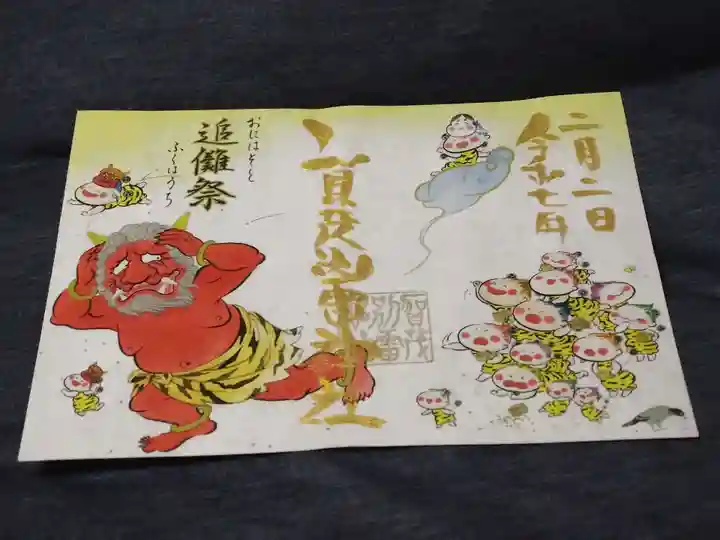 二月二日
令和七年
賀茂別雷神社
賀茂
別雷
おにはそと
追儺祭
ふくはうち